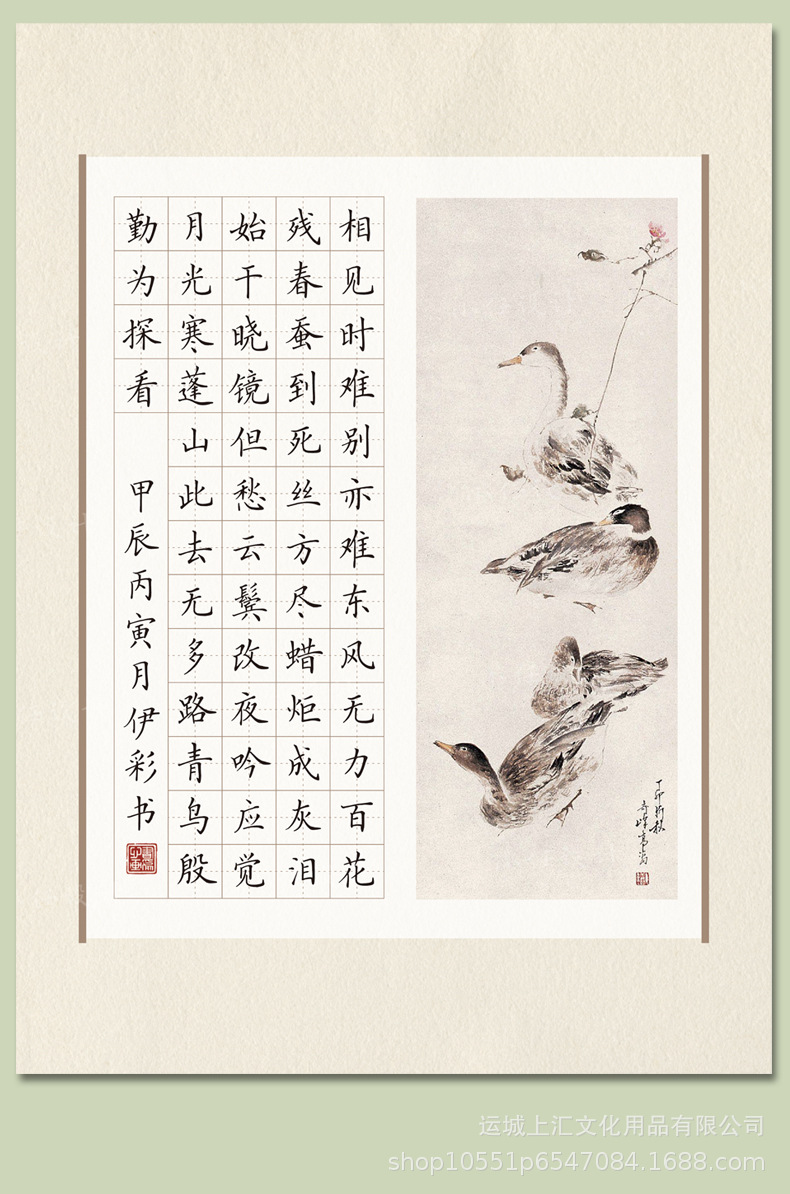 相见时难别亦难东风无力百花
残春蚕到死丝方尽蜡炬成灰泪
始干晓镜但愁云鬓改夜吟应觉
月光寒蓬山此去无多路青鸟殷
勤为探看
甲辰丙寅月伊彩书
丁卯初秋
奇峰高嵡
运城上汇文化用品有限公司
shop10551p6547084.1688.com